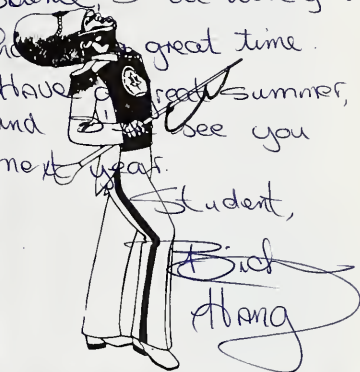 great time.
HAve a great summer,
and see you
next year.
Student,
Bich
HANg